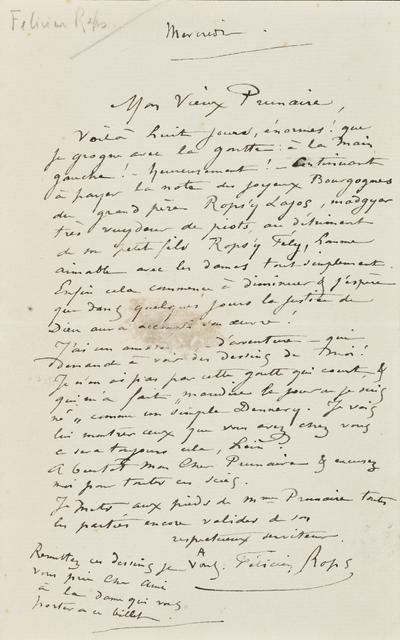 Félicien Rops
Mercredi
Mon Vieux Prunaire,
Voilà huit jours, énormes! que
je grogne avec la goutte: à la main
gauche! – heureusement! – continuant
à payer la note des joyeux Bourgognes
du grand père Ropsÿ Lajos, mâdgyar
très vuydeur de piots, au détriment
de son petit fils Ropsÿ Fély, homme
aimable avec les dames tout simplement.
Enfin cela commence à diminuer & j'espère
que dans quelques jours la justice de
Dieu aura son œuvre!
J'ai un d'aventure – qui
demande à voir des dessins de moi!
Je n'en ai pas par cette goutte qui court &
qui m'a fait „maudire le jour où je suis
né" comme un simple Dennery. Je vais
lui montrer ceux que vous avez chez vous
ce sera toujours cela, hein?
A bientôt Mon Cher Prunaire & excusez
moi pour toutes ces scies.
Je Mets aux pieds de Mme Prunaire toutes
les parties encore valides de son
respectueux serviteur.
A Vous. Félicien Rops
Remettez ces dessins je
vous prie Cher Ami
à la dame qui vous
portera ce billet.